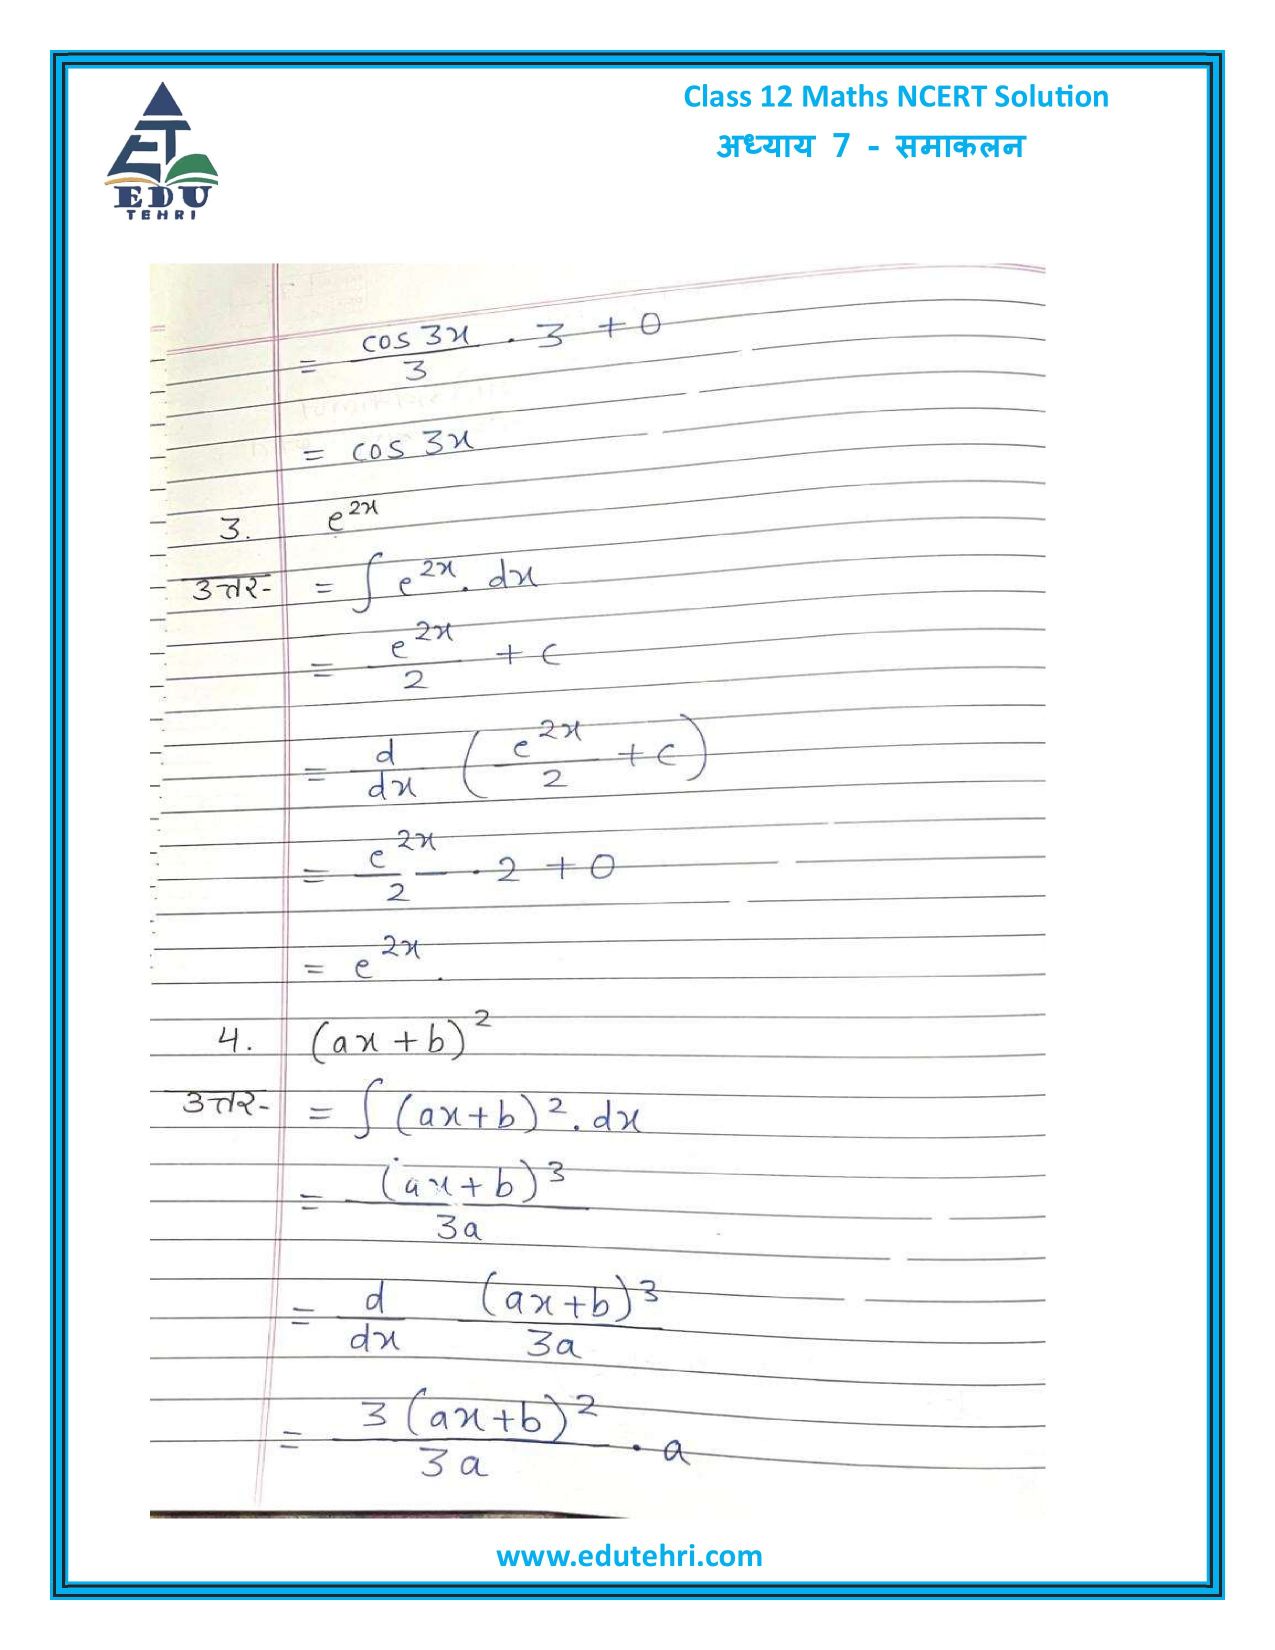 Class 12 Maths NCERT Solution
अध्याय 7 - समाकलन
EDU
TEHRI
= cos 3x / 3 . 3 + 0
= cos 3x
3. e^2x
उत्तर- = ∫ e^2x . dx
= e^2x / 2 + c
= d/dx ( e^2x / 2 + c )
= e^2x / 2 . 2 + 0
= e^2x .
4. (ax + b)^2
उत्तर- = ∫ (ax+b)^2 . dx
= (ax+b)^3 / 3a
= d/dx (ax+b)^3 / 3a
= 3 (ax+b)^2 / 3a . a
www.edutehri.com